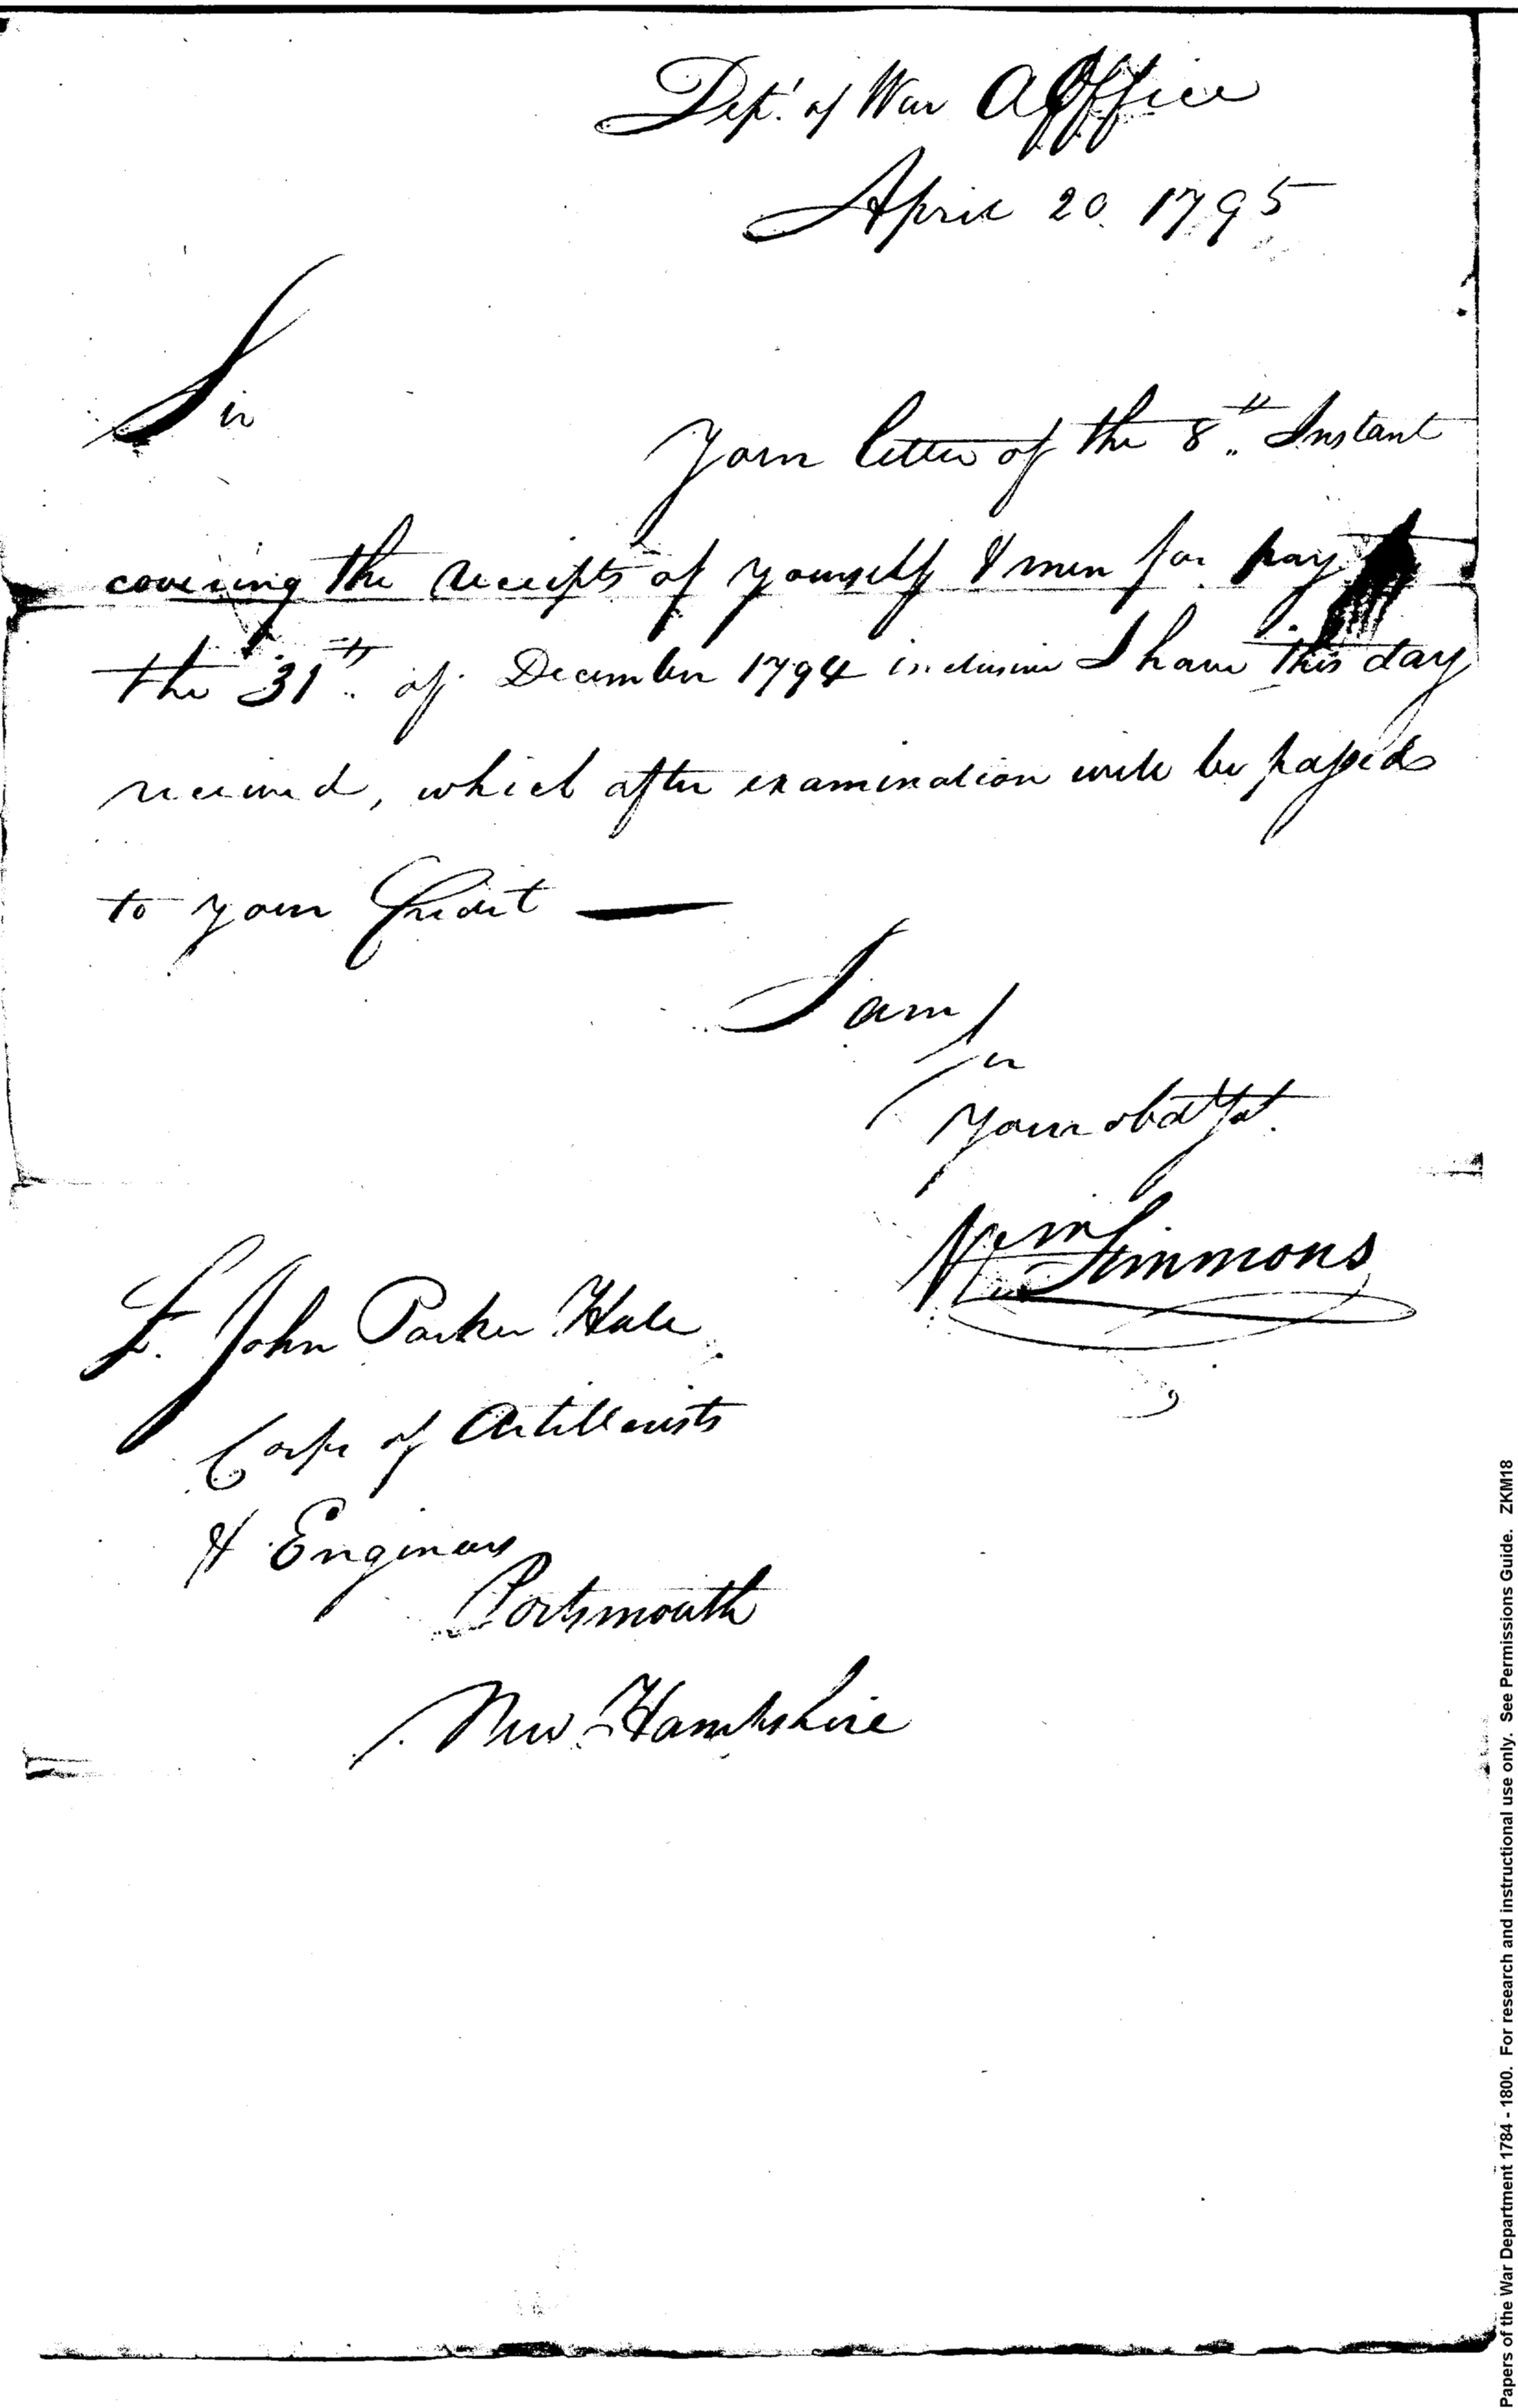 Dept. of War A Office
April 20. 1795
Sir
Your letter of the 8th Instant
covering the receipts of yourself & men for pay
the 31th of December 1794 inclusive I have this day
received, which after examination will be passed
to your Credit —
I am
Sir
Your obdt Sst.
Wm Simmons
Lt. John Parker Hale
Corps of Artillerists
& Engineers
Portsmouth
New Hampshire
Papers of the War Department 1784 - 1800. For research and instructional use only. See Permissions Guide. ZKM18